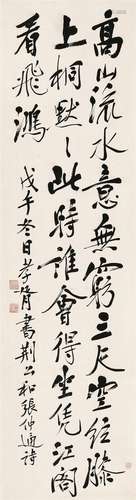 高山流水意無窮三尺空絃膝
上桐默〻此時誰會得坐凭江閣
看飛鴻
戊午冬日孝胥書荆公和張仲通詩